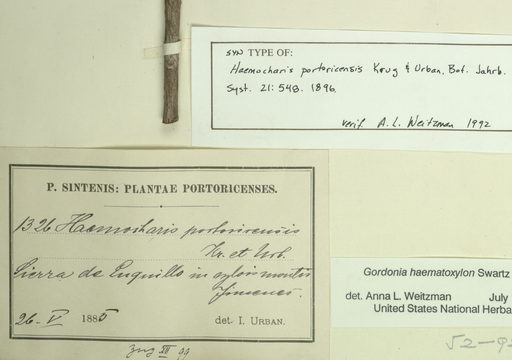 SYN TYPE OF:
Haemocharis portoricensis Krug & Urban, Bot. Jahrb.
Syst. 21: 548. 1896.
verif. A. L. Weitzman 1992
P. SINTENIS: PLANTAE PORTORICENSES.
1326 Haemocharis portoricensis
Kr. et Urb.
Sierra de Luquillo in sylvis montis
Jimenes.
26. IV 1885
det. I. URBAN.
Gordonia haematoxylon Swartz
det. Anna L. Weitzman July
United States National Herba
52-92